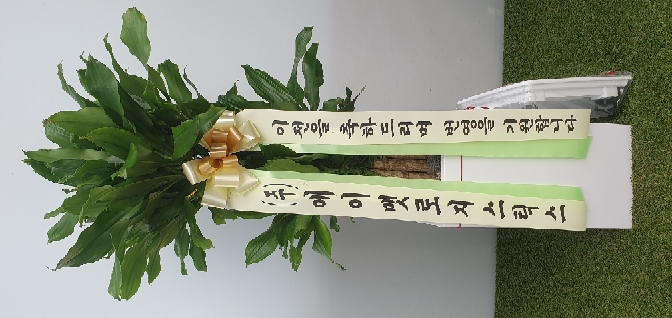 이전을 축하드리며 번영을 기원합니다
(주)에이멧로지스틱스